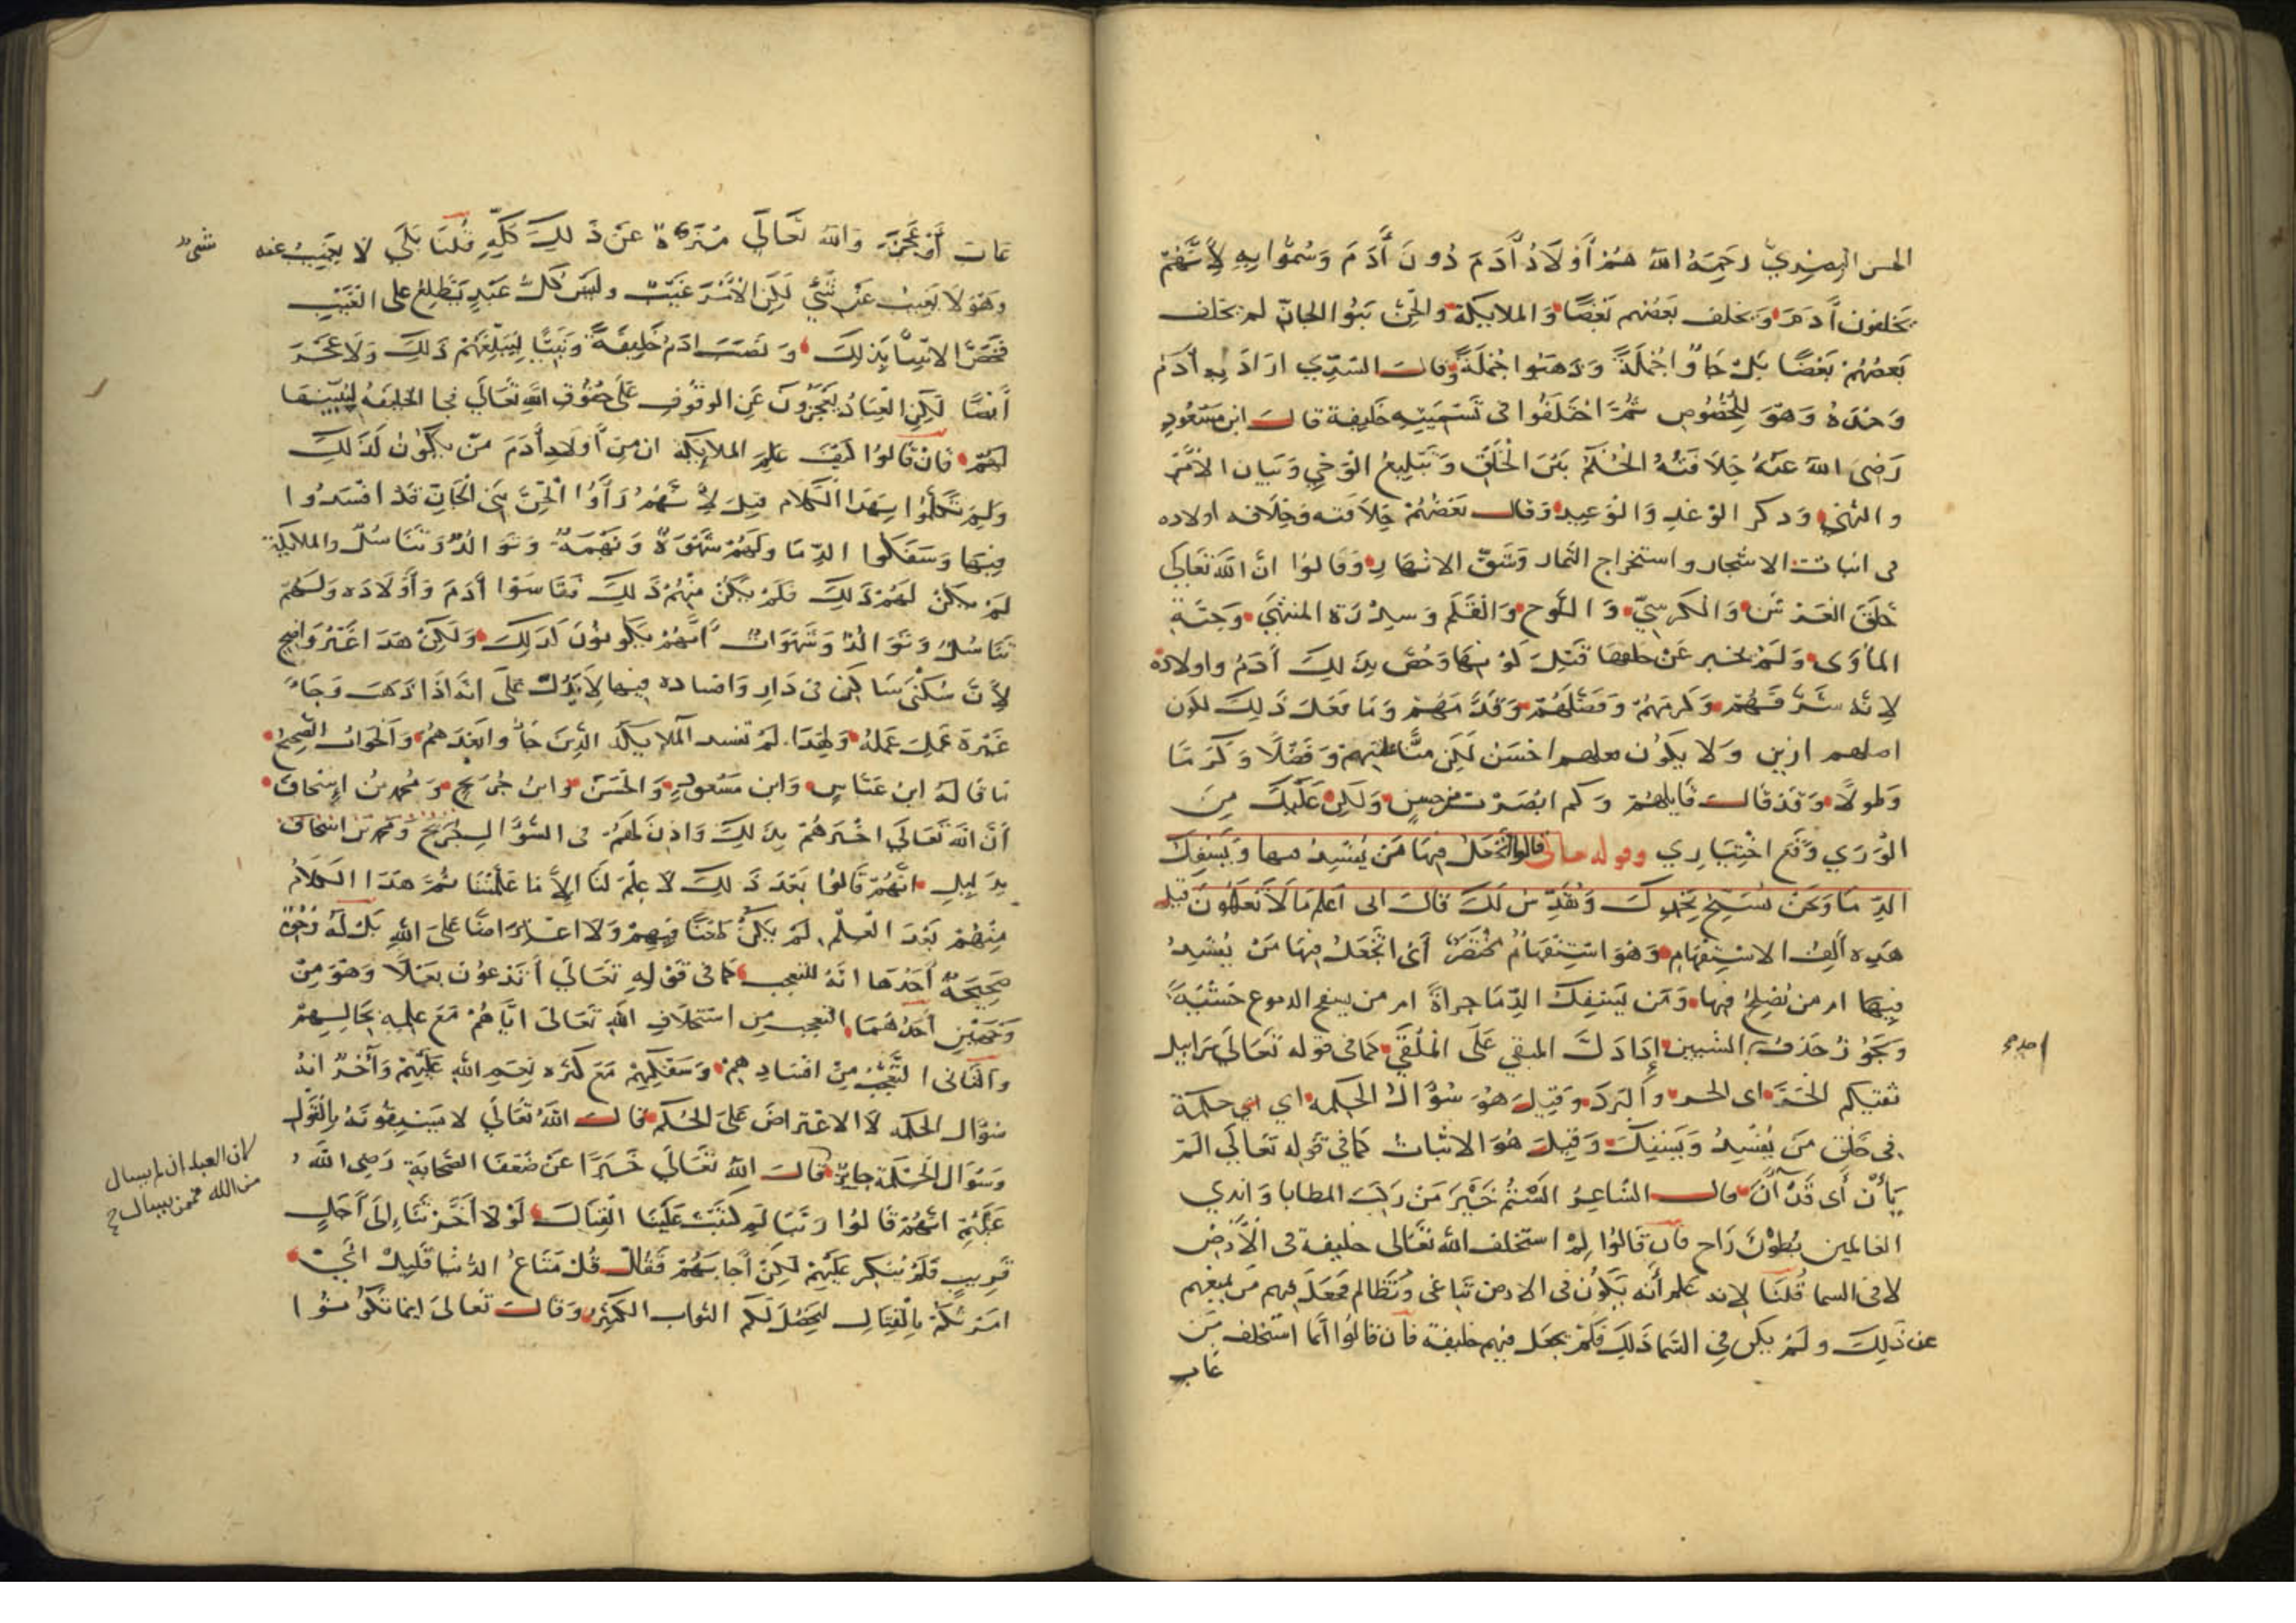 الحسن البصري رَحِمَهُ اللهُ هُمْ أَوْلَادُ آدَمَ دُونَ آدَمَ وَسُمُّوا بِهِ لِأَنَّهُمْ
يخلفون آدَمَ وَيخلف بَعْضُهم بَعْضًا وَالملايكة والجِنُّ بَنُوا الجانّ لم يخلف
بَعضُهُمْ بَعْضًا بَلْ جَاؤُا جُمْلَةً وَذَهَبُوا جُمْلَةً وقالَ السُّدِّي ارَادَ بِهِ آدَمَ
وَحْدَهُ وَهُوَ لِلْخُصُوصِ ثُمَّ اخْتَلَفُوا فى تَسْمِيَتِهِ خَلِيفة قالَ ابن مَسْعُودٍ
رَضِىَ اللهُ عَنْهُ خِلَافَتُهُ الحُكْمُ بَيْنَ الْخَلْقِ وَتَبْلِيغُ الْوَحْيِ وَبَيَان الأَمْرِ
والنَّهْيِ وَذكر الْوَعْدِ وَالْوَعِيدِ وَقَالَ بَعْضُهُمْ خِلَافَته وَخِلَافه اولاده
فى انبات الاشجار واستخراج الثمار وَشَقِّ الانْهَارِ وَقَالُوا انَّ اللَّهَ تَعَالَى
خَلَقَ الْعَرْشَ وَالْكُرْسِيَّ وَالَّلوح وَالْقَلَمَ وَسِدْرَةَ المنْتَهَى وَجَنَّةَ
المأوَى وَلَمْ يخبر عَنْ خلقها قَبْلَ كَوْنِهَا وَخُصَّ بِذَلِكَ آدَمُ واولادُهُ
لِانَّهُ شَرَّفَهُمْ وَكَرَّمَهُمْ وَفَضَّلَهُمْ وَقَدَّمَهُمْ وَمَا فَعَلَ ذَلِكَ لكَون
اصلهم ازين وَلا يَكُون فعلهم احْسَنَ لَكِنْ مَنًّا عَلَيْهِمْ وَفَضْلًا وَكَرَمًا
وَطولًا وَقَدْ قَالَ قَايلُهُمْ وَكم ابْصَرْتُ مِنْ حسنٍ وَلَكِنْ عَلَيْكَ مِنَ
الْوَرَي وَقَعَ اخْتِيَارِي وقوله تعالى قالوا أَتَجْعَلُ فِيهَا مَنْ يُفْسِدُ فيها وَيَسْفِكُ
الدِّمَا وَنَحْنُ نُسَبِّحُ بِحَمْدِكَ وَنُقَدِّسُ لَكَ قَالَ انى اعْلَمُ مَا لَا تَعْلَمُونَ قيل
هَذِهِ أَلِفُ الاسْتِفْهَامِ وَهُوَ اسْتِفْهَامٌ مُخْتَصَرٌ أَىْ اتَجْعَلُ فِيهَا مَنْ يُفْسِدُ
فِيهَا ام من يُصْلِحُ فِيهَا وَمَنْ يَسْفِكُ الدِّمَا جراةً ام من يسفح الدموع خَشْيَةً
وَيَجُوزُ حَذْفُ الشيين إذا دَلَّ المبقي عَلَى الْمُلْقَي كَمَا فى قوله تَعَالَى سَرَابِيلَ
تقيكم الحَرَّ اى الحر وَالْبَرْدَ وَقِيلَ هُوَ سُؤَالُ الحكمة اي اي حكمة
فى خَلْقِ مَنْ يُفْسِدُ وَيَسْفِكُ وَقِيلَ هُوَ الاثبَات كَمَا فِي قَوْله تَعَالَى اَلَمْ
يَأْنِ أَى قَدْ آنَ قال الشَّاعِرُ أَلَسْتُمُ خَيْرَ مَنْ رَكِبَ المطايا وَاندي
العالمين بُطُونَ رَاحٍ فان قَالُوا لِمَ استخلف الله تَعَالى خليفة فى الْأَرْضِ
لا فى السما قُلْنَا لِانه عَلِم أَنَّه يَكُون فى الارض تَبَاغى وَتَظَالم فَجَعَلَ فيهم من يمنعهم
عن ذَلِكَ وَلَمْ يكن فِي السَّمَا ذَلِكَ فَلَمْ يجعَل فيهم خليفة فان قَالُوا انَّمَا استخلف مَنْ
غاب
غَابَ أَوْ عَجَزَ وَاللهُ تَعَالَى مُنَزَّهٌ عَنْ ذَلِكَ كُلِّهِ قُلْنَا بَلَى لَا يَغِيبُ عنه شىء
وَهُوَ لَا يَغِيبُ عَنْ شَيْءٍ لَكِنَّ الأَمْرَ غَيْبٌ وليسَ كُلُّ عَبْدٍ يَطَّلِعُ على الْغَيْبِ
فَخَصَّ الانبِيَاءَ بِذَلِكَ وَنَصَبَ ادَمَ خَلِيفَةً وَنَبِيًّا لِيُبَلِّغَهُمْ ذَلِكَ وَلَا عَجَزَ
أَيْضًا لَكِنِ الْعِبَادُ يَعْجِزُونَ عَنِ الوقُوفِ عَلَى حُقُوقِ اللهِ تَعَالَى فجا الخليفة لِيُبَيِّنهَا
لَهُمْ فَانْ قَالُوا كَيْفَ عَلِمَ الملايكة ان مِنْ أَوْلَادِ آدَمَ مَنْ يَكُونُ كَذَلِكَ
وَلِمَ تَكَلَّمُوا بِهَذَا الْكَلَام قِيلَ لِأَنَّهُمْ رَأَوُا الْجِنَّ بَنِى الْجَانّ قَدْ افْسَدُوا
فِيهَا وَسَفَكُوا الدِّمَا وَلَهُمْ شَهْوَةٌ وَنَهْمَةٌ وَتَوَالُدٌ وَتَنَاسُلٌ والملايكة
لَمْ يَكُنْ لَهُمْ ذَلِكَ فَلَمْ يَكُنْ مِنْهُمْ ذَلِكَ فَقَاسَوْا آدَمَ وَأَوْلَادَه وَلَهُمْ
تَنَاسُلٌ وَتَوَالُدٌ وَشَهَوَاتٌ انَّهُمْ يَكُونُونَ كَذَلِكَ وَلَكِنْ هَذَا غَيْرُ وَاضِحٍ
لأَنَّ سُكْنَى سَاكِنٍ فى دَارٍ وَافساده فيها لَا يَدُلُّ عَلَى انَّهُ اذَا ذَهَبَ وَجَاءَ
غَيْرُهُ عَمِلَ عَمَلَهُ وَلِهَذَا لَمْ تفسد الملايكة الَّذِينَ جَاؤُا بَعْدَهُمْ وَالْجَوَابُ الصَّحِيحُ
مَا قَالَهُ ابنُ عَبَّاسٍ وَابن مَسْعُودٍ وَالْحَسَنُ وَابنُ جُرَيْجٍ وَمُحَمَّدُ بْنُ إِسْحَاقَ
أَنَّ اللهَ تَعَالَى اخْبَرَهُمْ بِذَلِكَ وَاذِنَ لَهُمْ فى السُّؤَالِ
بِدَلِيلِ انَّهُمْ قَالُوا بَعْدَ ذَلِكَ لَا عِلْمَ لَنَا الَّا مَا عَلَّمْتَنَا ثُمَّ هَذَا الْكَلَامُ
مِنْهُمْ بَعْدَ الْعِلْمِ لَمْ يَكُنْ طَعْنًا فِيهِمْ وَلَا اعْتِرَاضًا عَلَى اللهِ بَلْ لَهُ وُجُوهٌ
صَحِيحَةٌ أَحَدُهَا انَّهُ للتعجب كَمَا فى قَوْلِهِ تَعَالَى أَتَدْعُونَ بَعْلًا وَهُوَ مِنْ
وَجْهَيْنِ أَحَدُهُمَا التعجب مِن اسْتخلَافِ اللهِ تَعَالَى ايَّاهُمْ مَعَ علمِهِ بِحَالِهِمْ
وَالثَّانى التَّعَجُّبُ مِنْ افْسَادِهِمْ وَسَفْكِهِمْ مَعَ كَثْرَه نِعَمِ اللهِ عَلَيْهِمْ وَآخَرُ انَّهُ
سُؤَالُ الحكمة لَا الاعْتِرَاض عَلَى الحُكْمِ قَالَ اللهُ تَعَالَى لا يَسْبِقُونَهُ بِالْقَوْلِ
وَسُؤَال الْحِكْمَةِ جايز قَالَ اللهُ تَعَالَى خَبَرًا عَنْ ضُعَفَا الصَّحَابَةِ رَضِىَ اللَّهُ
عَنْهُمْ انَّهُمْ قَالُوا رَبَّنَا لِمَ كَتَبْتَ عَلَيْنَا الْقِتَالَ لَوْلَا أَخَّرْتَنَا إِلَى أَجَلٍ
قَرِيبٍ فَلَمْ يُنْكِرْ عَلَيْهِمْ لَكِنْ أَجَابَهُمْ فَقَالَ قُلْ مَتَاعُ الدُّنْيَا قَلِيلٌ
امَرْتُكُمْ بِالْقِتَالِ لِيَحْصُلَ لَكُم الثواب الكَثِيرُ وَقَالَ تَعَالَى اينما تَكُونُوا
لان العبد ان لم يسال
من الله فممن يسال